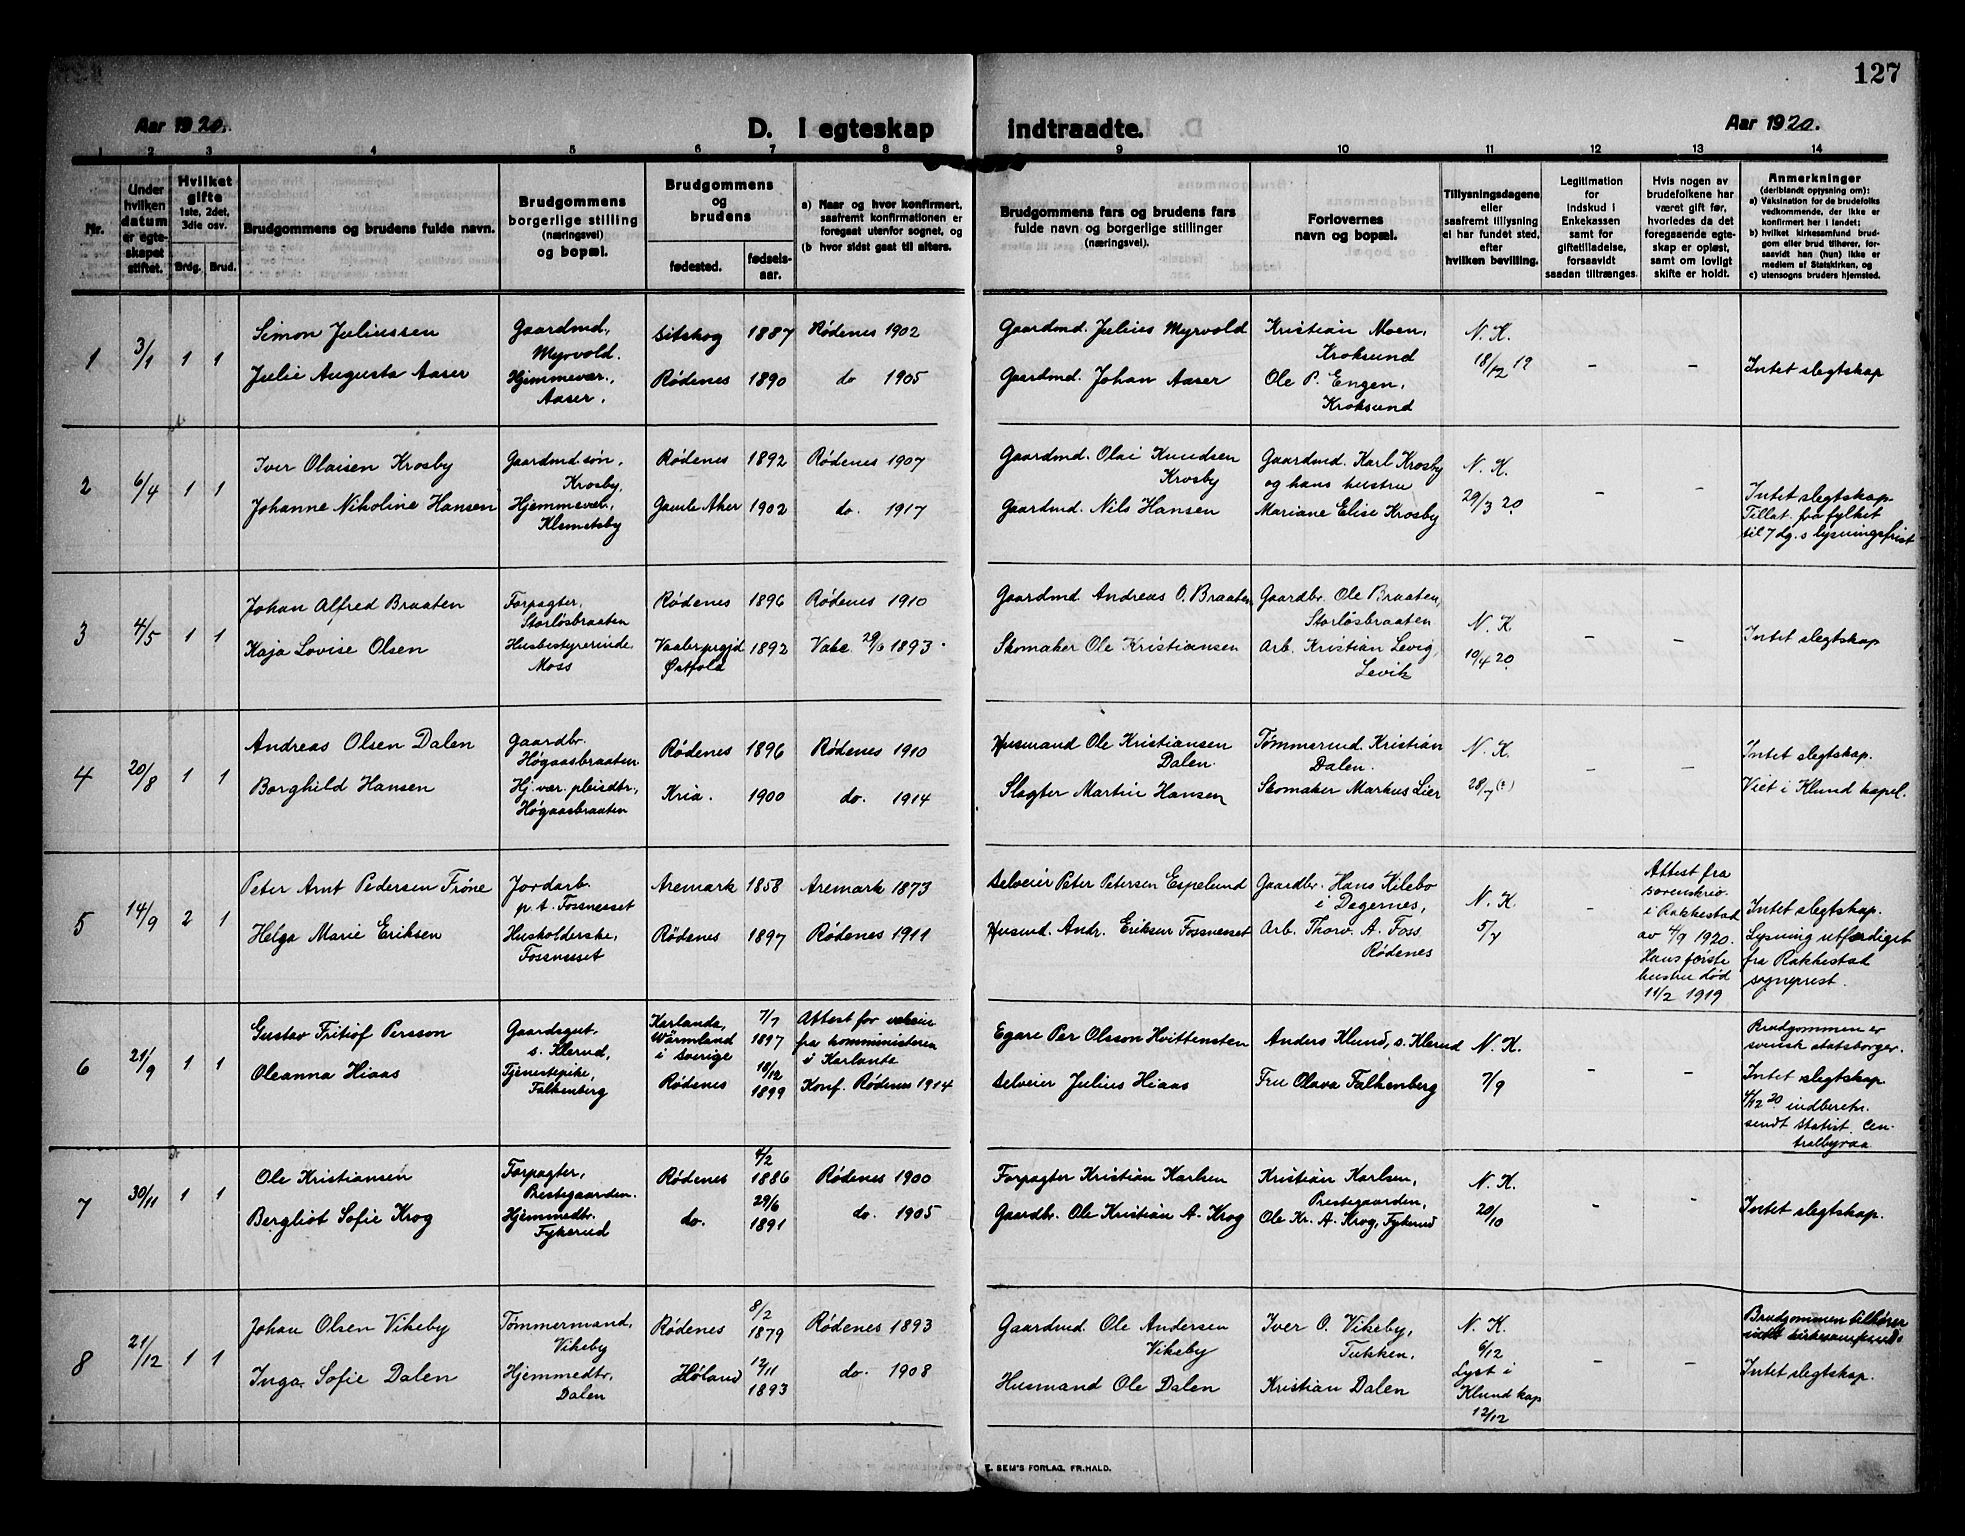 127
Aar 1920.
D. I egteskap indtraadte.
Aar 1920.
1 2 3 4 5 6 7 8 9 10 11 12 13 14
Nr.
Under hvilken datum er egteskapet stiftet.
Hvilket gifte 1ste, 2det, 3die osv.
Brdg. Brud.
Brudgommens og brudens fulde navn.
Brudgommens borgerlige stilling (næringsvei) og bopæl.
Brudgommens og brudens
fødested.
fødselsaar.
a) Naar og hvor konfirmert, saafremt konfirmationen er foregaat utenfor sognet, og
(b hvor sidst gaat til alters.
Brudgommens fars og brudens fars fulde navn og borgerlige stillinger (næringsvei).
Forlovernes navn og bopæl.
Tillysningsdagene eller saafremt tillysning ei har fundet sted, efter hvilken bevilling.
Legitimation for indskud i Enkekassen samt for giftetilladelse, forsaavidt saadan tiltrænges.
Hvis nogen av brudefolkene har været gift før, hvorledes da det foregaaende egteskap er opløst, samt om lovligt skifte er holdt.
Anmerkninger (deriblandt optysning om): a) Vaksination for de brudefolks vedkommende, der ikke er konfirmert her i landet; b) hvilket kirkesamfund brudgom eller brud tilhører, forsaavidt han (hun) ikke er medlem af Statskirken, og c) utensogns bruders hjemsted.
1 3/1 1 1
Simon Juliussen
Julie Augusta Aaser
Gaardmd., Myrvold.
Hjemmevær., Aaser.
Sitskog 1887 Rødenes 1902
Rødenes 1890 do 1905
Gaardmd. Julius Myrvold
Gaardmd. Johan Aaser
Kristian Moen, Kroksund
Ole P. Engen, Kroksund
N. K. 18/12 19
-
-
Intet slegtskap
2 6/4 1 1
Iver Olaisen Krosby
Johanne Nikoline Hansen
Gaardmd.søn, Krosby,
Hjemmevær., Klemetsby
Rødenes 1892 Rødenes 1907
Gamle Aker 1902 do. 1917
Gaardmd. Olai Knudsen Krosby
Gaardmd. Nils Hansen
Gaardmd. Karl Krosby
og hans hustru
Mariane Elise Krosby
N. K. 29/3 20
-
-
Intet slegtskap
Tillat. fra fylket
til 7 dg.s lysningsfrist
3 4/5 1 1
Johan Alfred Braaten
Kaja Lovise Olsen
Forpagter, Storløsbraaten
Husbestyrerinde Moss
Rødenes 1896 Rødenes 1910
Østfold 1892 Vake 29/6 1893
Gaardmd. Andreas O. Braaten
Skomaker Ole Kristiansen
Gaardbr. Ole Braaten, Storløsbraaten
Arb. Kristian Levig, Levik
N. K 19/4 20
-
-
Intet slegtskap
4 20/8 1 1
Andreas Olsen Dalen
Borghild Hansen
Gaardbr. Høgaasbraaten
Hj.vær. pleiedtr., Høgaasbraaten
Rødenes 1896 Rødenes 1910
Kria. 1900 do. 1914
Husmand Ole Kristiansen Dalen.
Slagter Martin Hansen
Tømmermd. Kristian Dalen.
Skomaker Markus Lier
N. K. 28/7
-
-
Intet slegtskap.
Viet i Klund kapel.
5 14/9 2 1
Peter Arnt Pedersen Frøne
Helga Marie Eriksen
Jordarb. p.t. Fossnesset
Husholderske, Fossnesset
Aremark 1858 Aremark 1873
Rødenes 1897 Rødenes 1911
Selveier Peter Petersen Espelund
Husmd. Andr. Eriksen Fossnesset
Gaardbr. Hans Kilebo i Degernes,
Arb. Thorv. A. Foss Rødenes
N. K. 5/7
-
Attest fra
sorenskriv.
i Rakkestad
av 4/9 1920.
Hans første
hustru død
11/2 1919
Intet slegtskap.
Lysning utfærdiget
fra Rakkestad
sogneprest.
6 21/9 1 1
Gustav Fritiof Persson
Oleanna Hiaas
Gaardsgut s. Klerud,
Tjenestepike, Falkenberg
Karlanda, Wärmland i Sverige 7/7 1897
Attest for vaksin fra komministeren i Karlanda
Rødenes 18/12 1899 Konf. Rødenes 1914
Egare Per Olsson Hvittensten
Selveier Julius Hiaas
Anders Klund, s. Klerud
Fru Olava Falkenberg
N. K. 7/9
-
-
Brudgommen er
svensk statsborger.
Intet slegtskap
4/12 20 indberetn.
sendt Statist. Centralbyraa
7 30/11 1 1
Ole Kristiansen
Bergliot Sofie Krog
Forpagter, Prestegaarden.
Hjemmedtr. Fykerud
Rødenes 4/2 1886 Rødenes 1900
do. 29/6 1891 do. 1905
Forpagter Kristian Karlsen
Gaardbr. Ole Kristian A. Krog
Kristian Karlsen, Prestegaarden,
Ole Kr. A. Krog, Fykerud
N. K. 20/10
-
-
Intet slegtskap.
8 21/12 1 1
Johan Olsen Vikeby
Inga Sofie Dalen
Tømmermand, Vikeby
Hjemmedtr, Dalen
Rødenes 8/2 1879 Rødenes 1893
Høland 12/11 1893 do. 1908
Gaardmd. Ole Andersen Vikeby
Husmand Ole Dalen
Iver O. Vikeby, Tukken.
Kristian Dalen
N. K. 6/12
Lyst i
Klund kap
12/12
-
-
Brudgommen tilhører
intet kirkesamfund.
Intet slegtskap.
E. SEM'S FORLAG, FR.HALD.